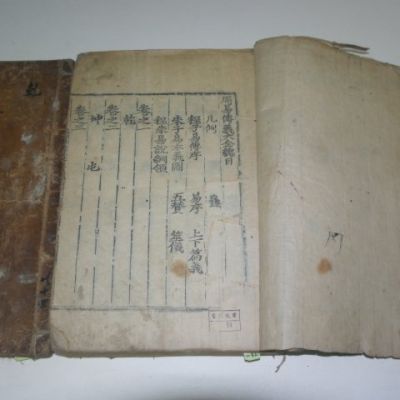 周易傳義大全總目
凡例
程子易傳序 易序 上下篇義
朱子易本義圖 五贊 筮儀
程朱易說綱領
卷之一
乾
卷之二
坤 屯
卷之三
乾